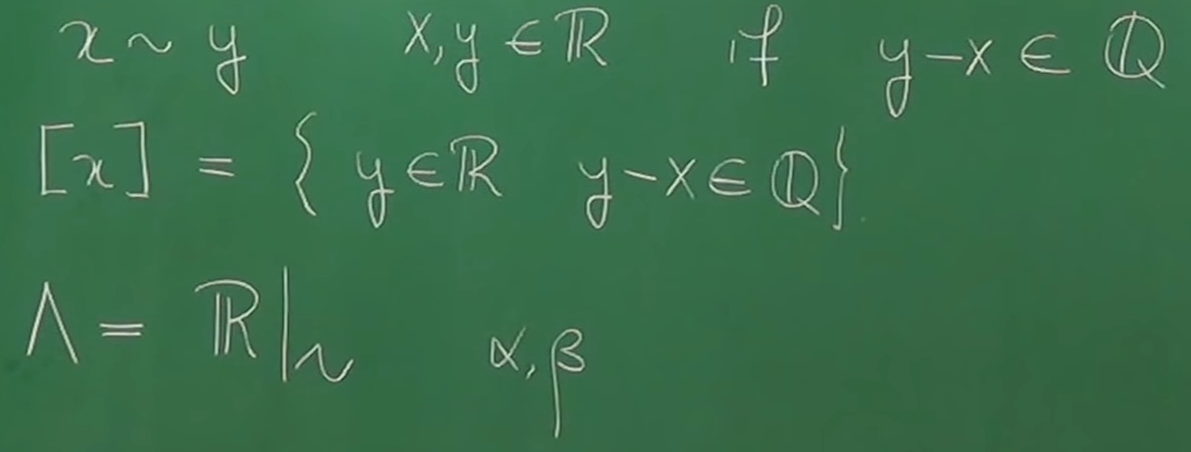 x ~ y x, y ∈ ℝ if y-x ∈ ℚ
[x] = { y ∈ ℝ y-x ∈ ℚ}
Λ = ℝ|~ α, β